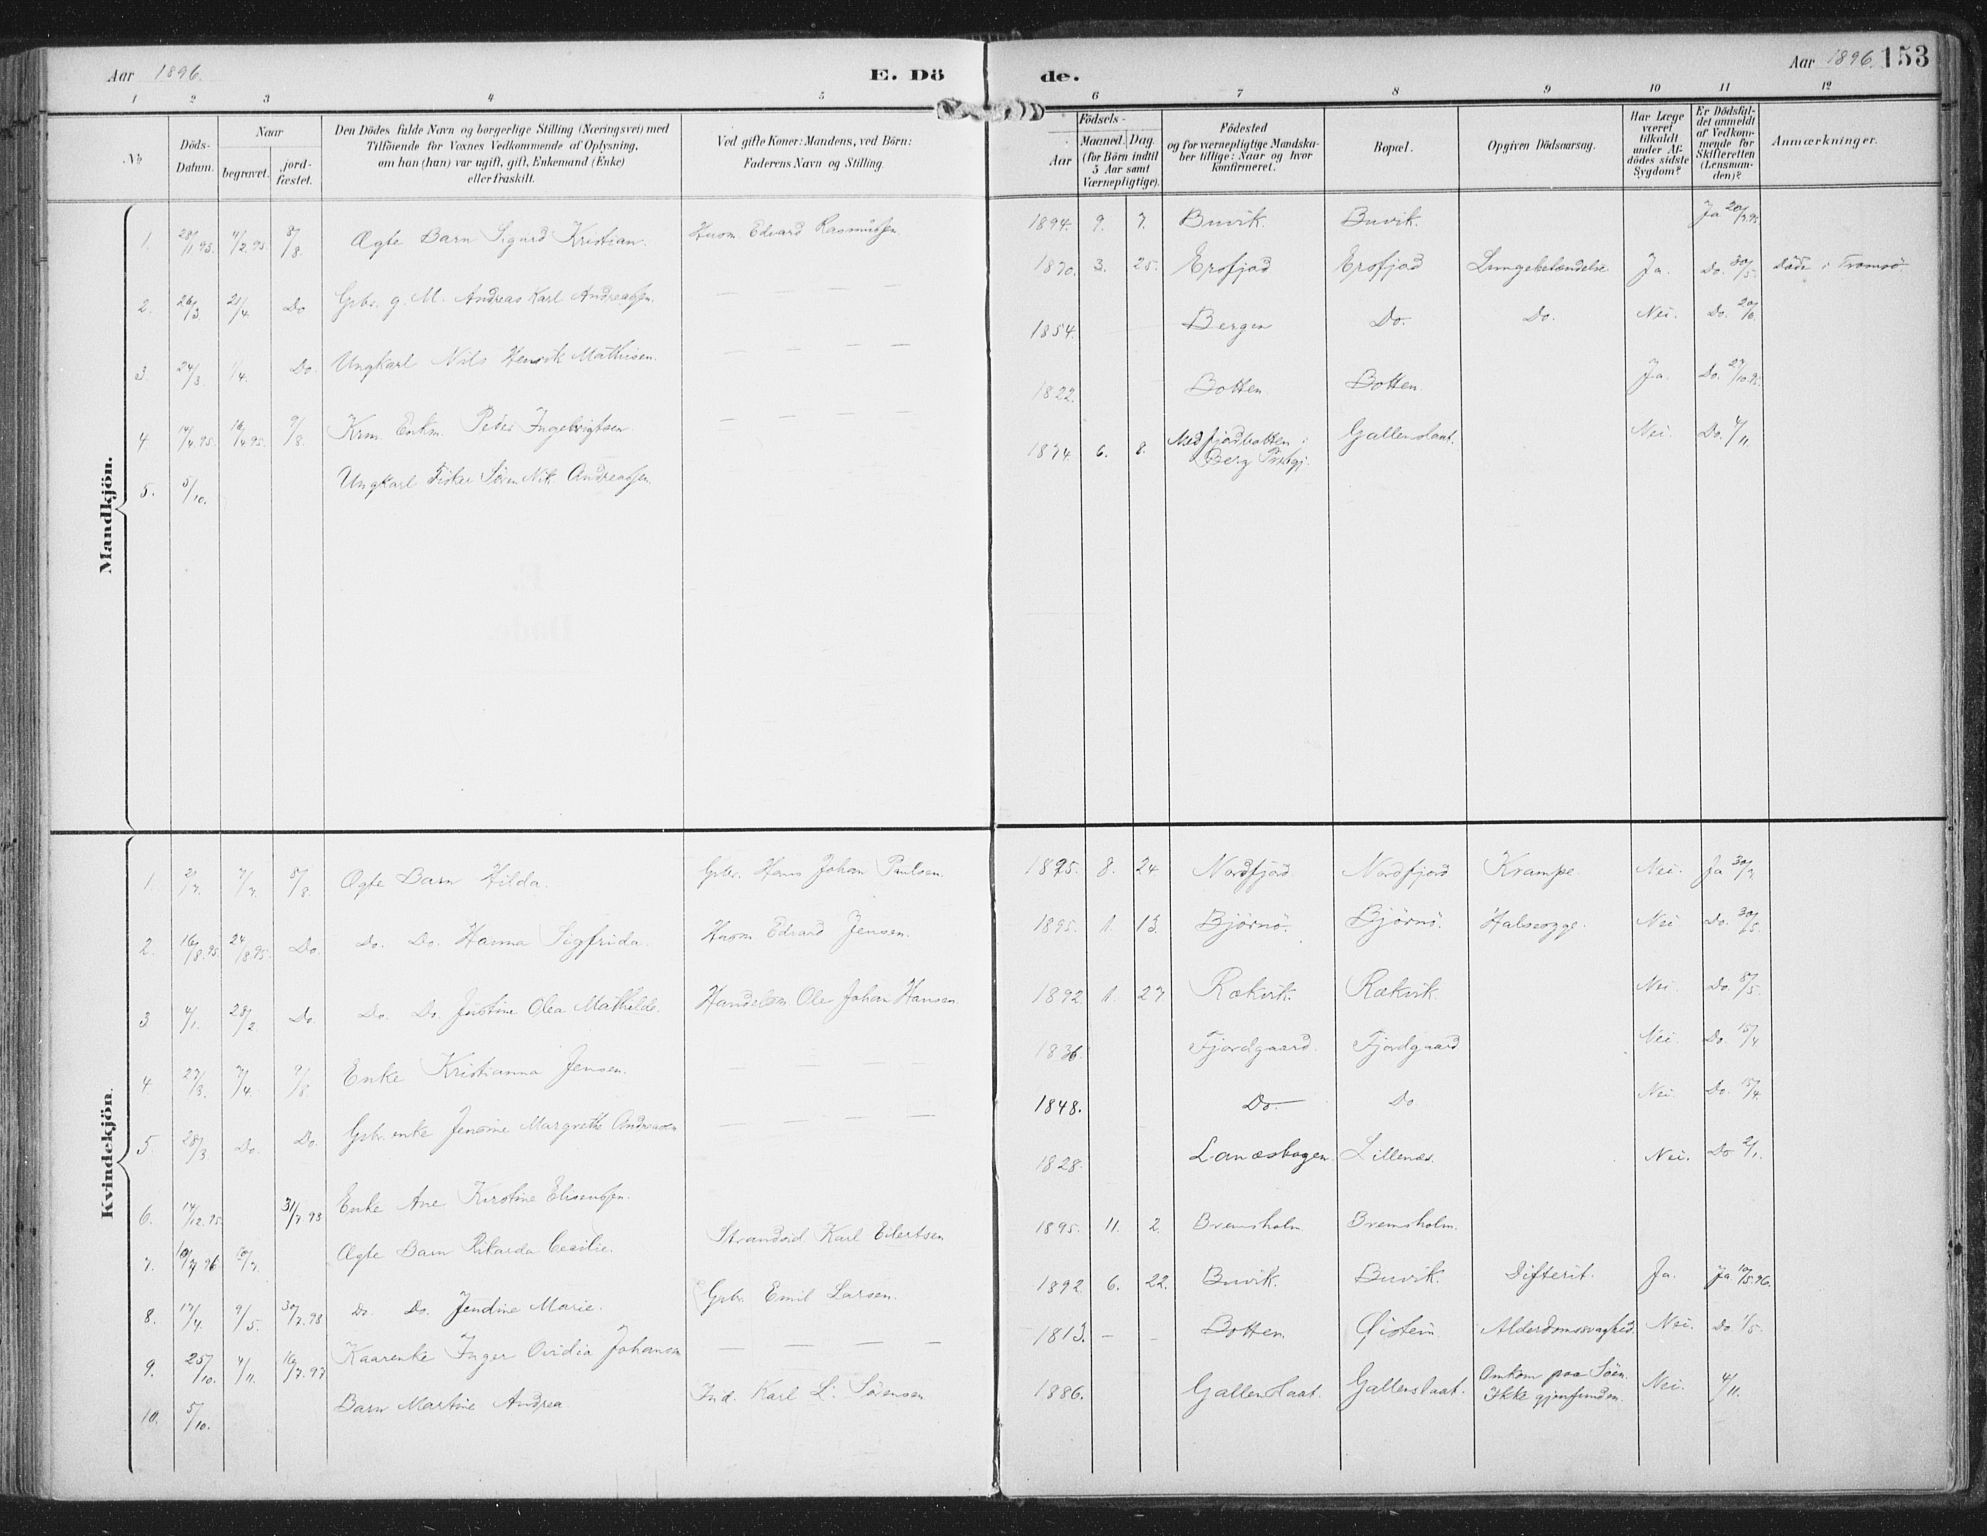 Aar 1896. E. Dö de. Aar 1896. 153
1 2 3 4 5 6 7 8 9 10 11 12
No
Döds-Datum.
Naar
begravet.
jord-fæstet.
Den Dödes fulde Navn og borgerlige Stilling (Næringsvei) med
Tilföiende for Voxnes Vedkommende af Oplysning,
om han (hun) var ugift, gift, Enkemand (Enke)
eller fraskilt.
Ved gifte Koner: Mandens, ved Börn:
Faderens Navn og Stilling.
Födsels-
Aar
Maaned. Dag.
(for Börn indtil
5 Aar samt
Værnepligtige).
Födested
og for værnepligtige Mandska-
ber tillige: Naar og hvor
konfirmeret.
Bopæl.
Opgiven Dödsaarsag.
Har Læge
været
tilkaldt
under Af-
dödes sidste
Sygdom?
Er Dödsfal-
det anmeldt
af Vedkom-
mende for
Skifteretten
(Lensman-
den)?
Anmærkninger.
Mandkjön.
1. 28/1 95. 4/2 95. 8/8. Ægte Barn Sigurd Kristian. Husm. Edvard Rasmussen. 1894. 9. 7. Buvik. Buvik. Ja
2. 26/3. 21/4. Do Gbr. g. M. Andreas Karl Andreassen. — — — — 1870. 3. 25. Ersfjod Ersfjod Lungebetændelse Ja. Do. 30/5. Døde i Tromsø
3. 24/3. 1/4. Do. Ungkarl Nils Henrik Mathisen. — — — — 1854. Bergen Do. Do. Nei. Do.
4. 14/4 95. 16/4 95. 9/8. Krm. Enkm. Peder Ingebrigtsen. — — — — 1822. Botten. Botten. Ja. Do.
5. 3/10. Ungkarl Fisker Søren Nik. Andreassen. 1874 6. 8. Medfjordbotten i
Berg Prstgj. Gallenslaat. Nei. Do. 4/11
Kvindekjön.
1. 2/7. 7/7. 8/8. Ægte Barn Hilda. Gbr. Hans Johan Paulsen. 1895. 8. 24 Nordfjord. Nordfjord Krampe. Nei. Ja 30/7.
2. 16/8 95. 24/8 95. Do. Do. Do. Hanna Sigfrida. Husm. Edvard Jensen. 1895. 1. 13. Bjørnø. Bjørnø. Halsesyge. Nei Do. 30/5.
3 4/1. 28/2 Do. Do. Do. Justine Olea Mathilde. Handelsm Ole Johan Hansen. 1892. 1. 27. Rækvik. Rækvik. Nei. Do. 8/5.
4 27/3. 7/4. 9/8. Enke Kristianna Jensen. — — — 1836. Fjordgaard. Fjordgaard Nei. Do. 15/4
5 28/3. Do. Do. Gbr. enke Jensine Margrethe Andreasen — — — 1848. Do. Do Nei. Do. 15/4.
6. 14/12 95. 31/7 98 Enke Ane Kirstine Elisenssen. 1828. Lanæsbogen. Lillenæs. Nei. Do 2/1.
7. Ægte Barn Rikarda Cecilie. Strandsid Karl Edertsen 1895. 11. 2. Bremsholm Bremsholm.
8. 17/4 9/5. 30/7. 98 Do. Do. Jendine Marie. Gbr. Emil Larsen. 1892 6. 22. Buvik. Buvik. Difterit. Ja. Ja. 10/5. 96.
9. 25/10. 4/11. 16/7. 97 Kaarenke Inger Ovidia Johansen — — — — 1813. — — Botten Øistein Alderdomssvaghed. Nei. Do
10. 5/10. Barn Martine Andrea Ind. Karl L. Sørensen 1886. Gallenslaat. Gallenslaat. Omkom paa Søen.
Ikke gjenfunden. Nei. 4/11.